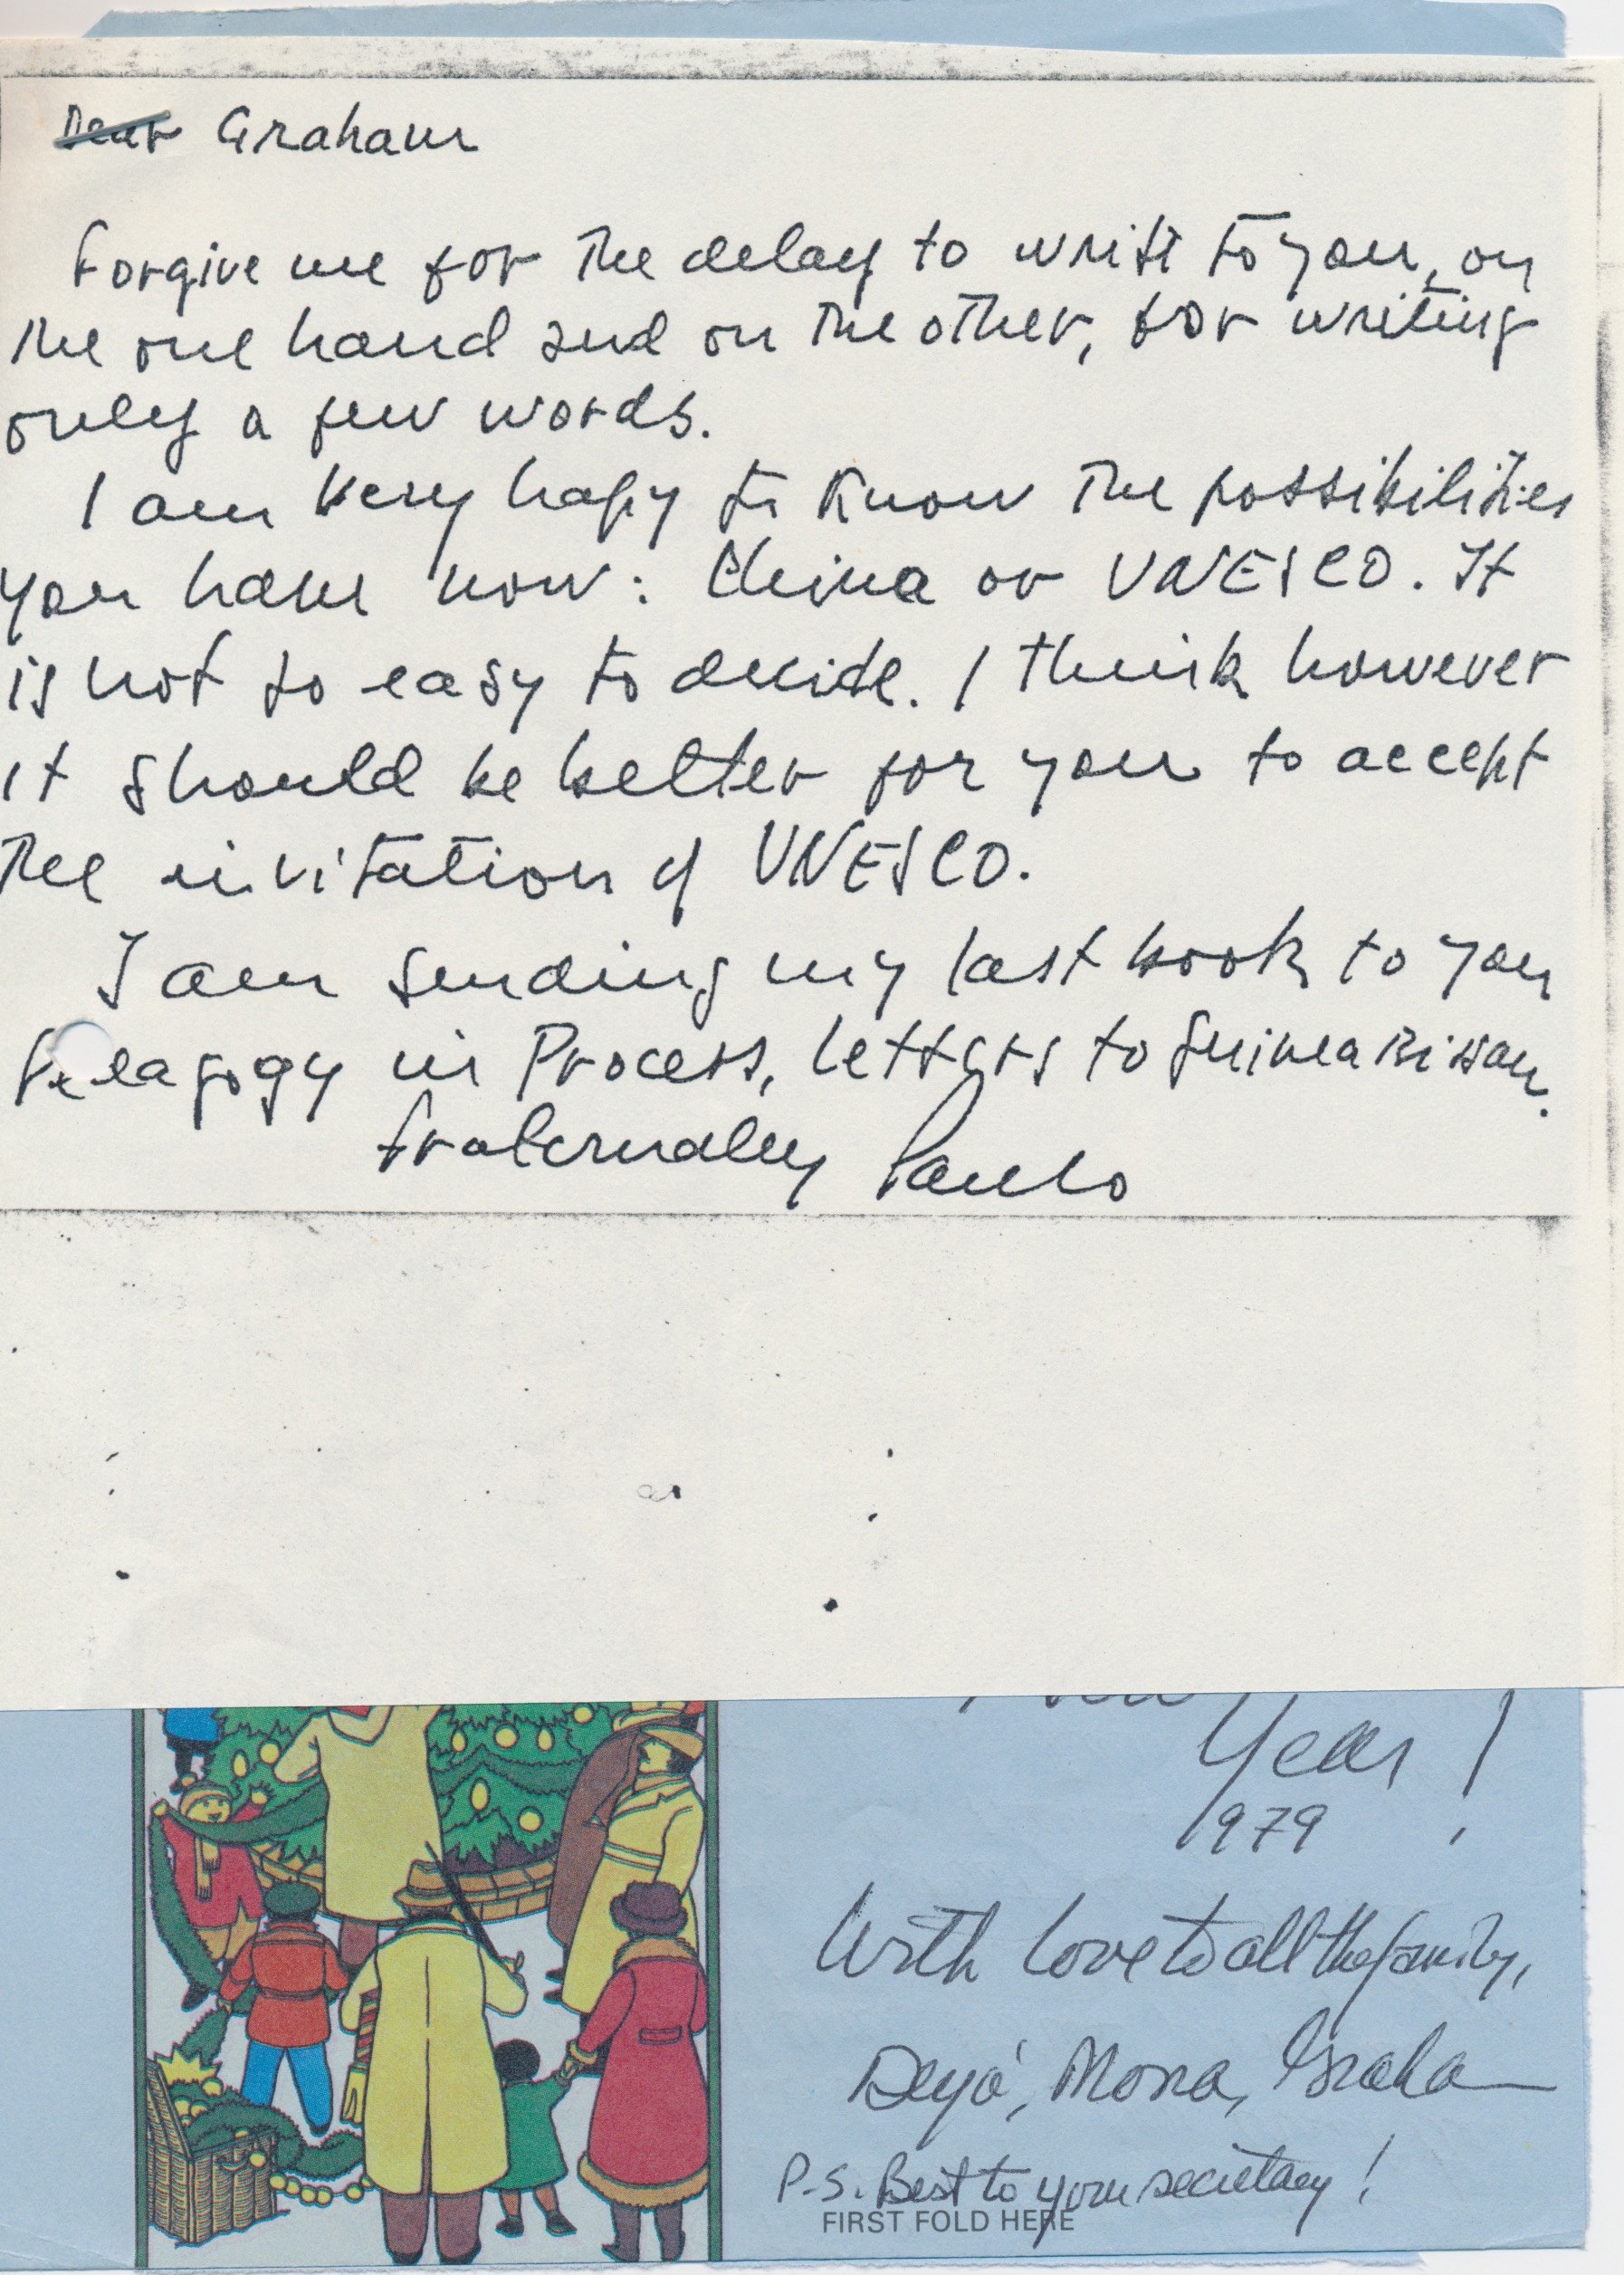 Dear Graham
Forgive me for the delay to write to you, on
the one hand and on the other, for writing
only a few words.
I am very hapy to know the possibilities
you have now: China or UNESCO. It
is not so easy to decide. I think however
it should be better for you to accept
the invitation of UNESCO.
I am sending my last book to you
Pedagogy in Process, Letters to Guinea Bissau.
Fraternally Paulo
Year!
1979
With love to all the family,
Deyá, Mona, Graha
P.S. Best to your secretary!
FIRST FOLD HERE